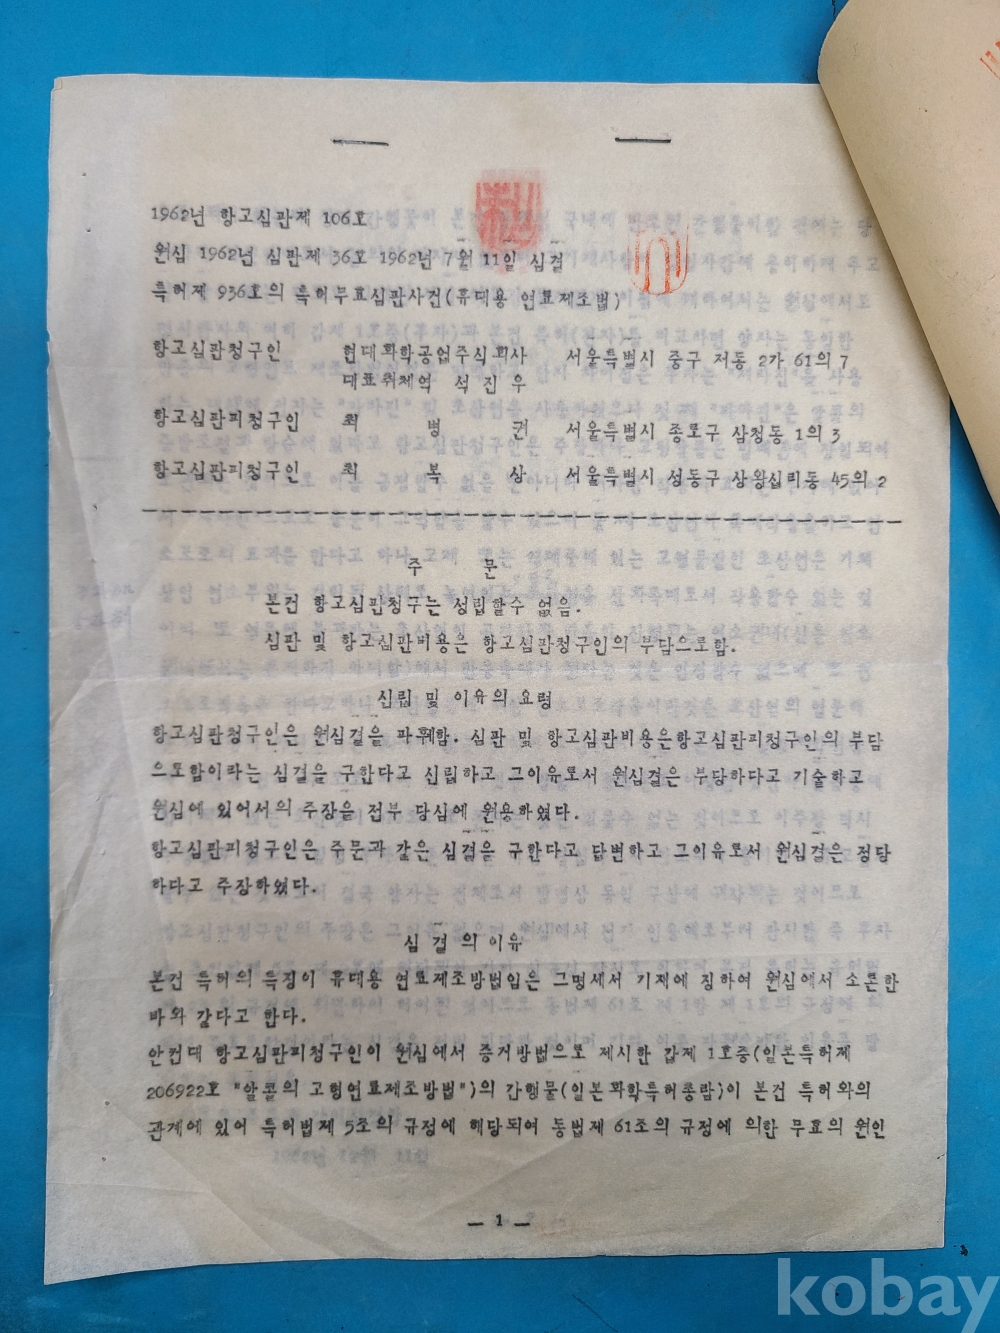 1962년 항고심판제 106호
원심 1962년 심판제 36호 1962년 7월 11일 심결
특허제 936호의 특허무효심판사건(휴대용 연료제조법)
항고심판청구인 현대화학공업주식회사 서울특별시 중구 저동 2가 61의 7
대표취체역 석진우
항고심판피청구인 최병권 서울특별시 종로구 삼청동 1의 3
항고심판피청구인 최복상 서울특별시 성동구 상왕십리동 45의 2
주 문
본건 항고심판청구는 성립할수 없음.
심판 및 항고심판비용은 항고심판청구인의 부담으로함.
신립 및 이유의 요령
항고심판청구인은 원심결을 파훼함. 심판 및 항고심판비용은항고심판피청구인의 부담
으로함이라는 심결을 구한다고 신립하고 그이유로서 원심결은 부당하다고 기술하고
원심에 있어서의 주장을 전부 당심에 원용하였다.
항고심판피청구인은 주문과 같은 심결을 구한다고 답변하고 그이유로서 원심결은 정당
하다고 주장하였다.
심 결 의 이유
본건 특허의 특징이 휴대용 연료제조방법임은 그명세서 기재에 징하여 원심에서 소론한
바와 같다고 한다.
안컨대 항고심판피청구인이 원심에서 증거방법으로 제시한 갑제 1호증(일본특허제
206922호 "알콜의 고형연료제조방법")의 간행물(일본화학특허총람)이 본건 특허와의
관계에 있어 특허법제 5조의 규정에 해당되여 동법제 61조의 규정에 의한 무효의 원인
— 1 —
kobay